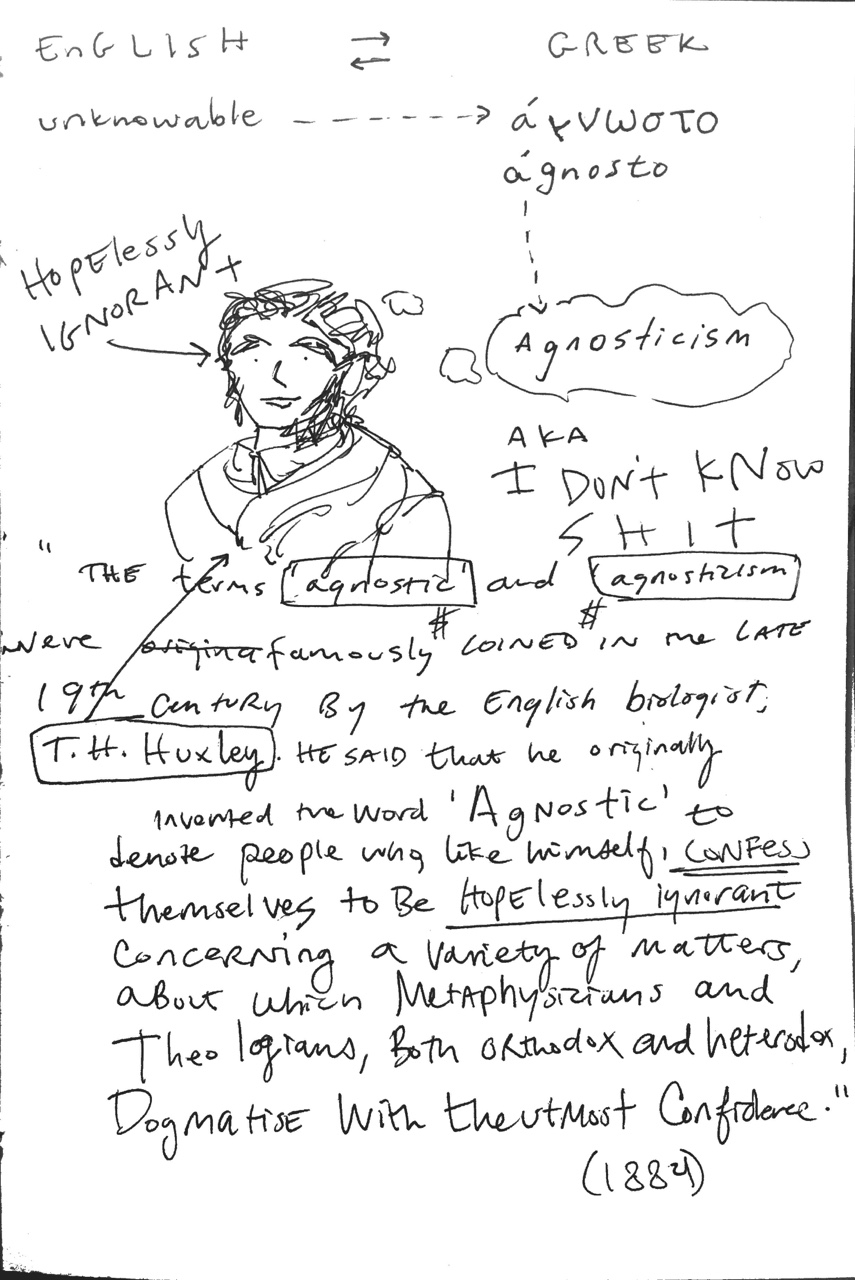 EnGLISH ⇄ GREEK
unknowable - - - - - - -> άγνωστο
ágnosto
HopElessly
IGNORANt
Agnosticism
AKA
I DON'T KNOW
SHIT
"THE terms 'agnostic' and 'agnosticism'
were origina famously # COINED # IN the LATE
19th Century By the English biologist,
T.H. Huxley. HE SAID that he originally
invented the word 'AgNostic' to
denote people who, like himself, CONFess
themselves to Be HopElessly ignorant
ConcERNing a variety of matters,
aBout which MetAphysicians and
Theologians, Both ORthodox and heterodox,
DogmatisE With the utMost Confidence."
(1884)